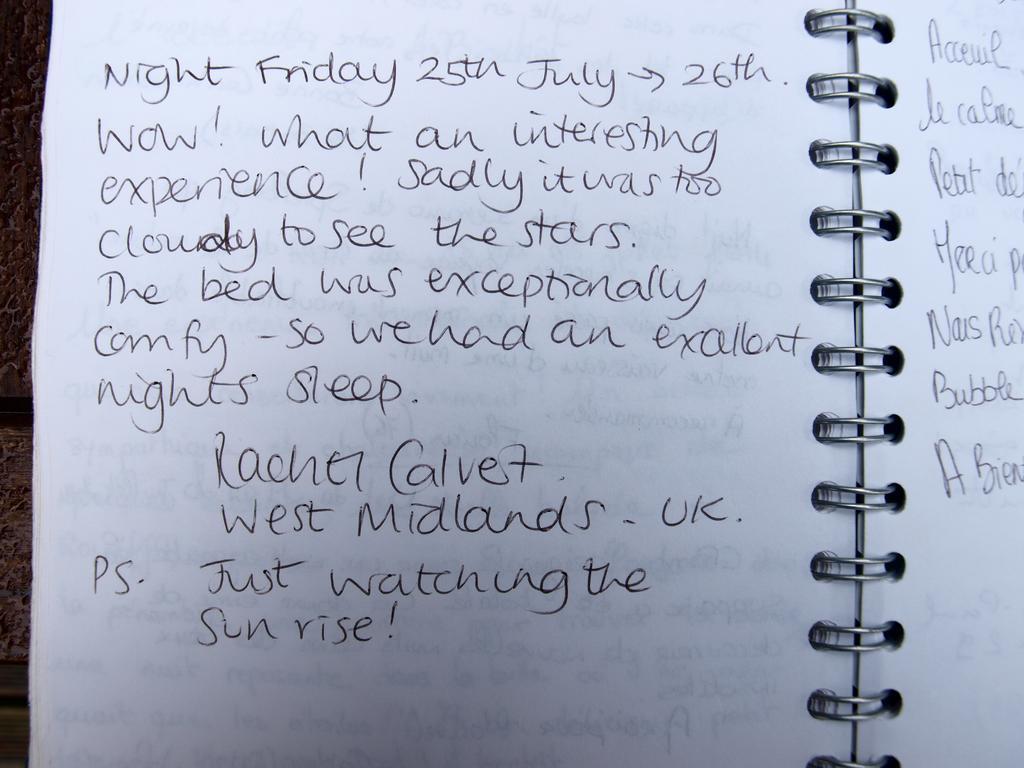 Night Friday 25th July → 26th.
Wow! what an interesting
experience! Sadly it was too
cloudy to see the stars.
The bed was exceptionally
comfy - so we had an exallent
nights sleep.
Rachel Calvert.
West Midlands - UK.
PS. Just watching the
Sun rise!
Acceuil
le calme
Petit dé
Merci p
Nous Re
Bubble
A Bient